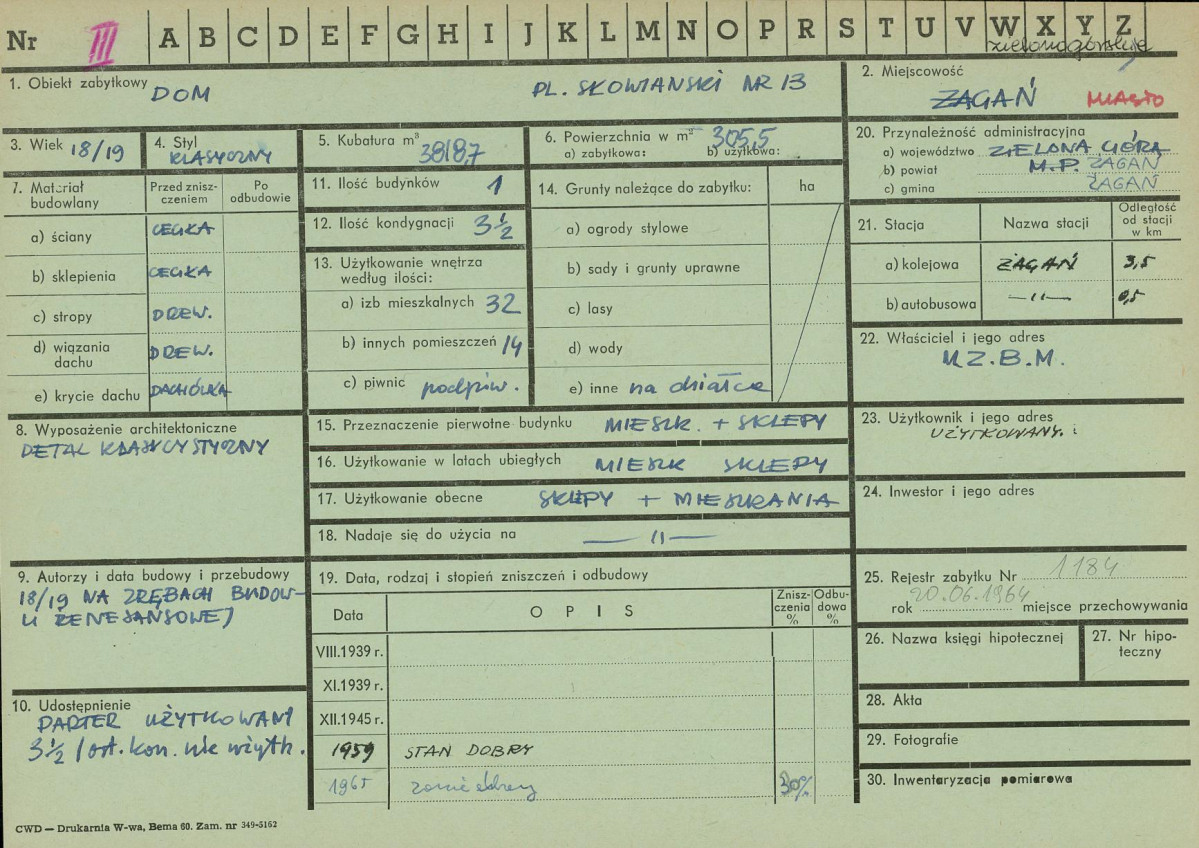 Nr III A B C D E F G H I J K L M N O P R S T U V W X Y Z
zielonogórskie
1. Obiekt zabytkowy DOM PL. SŁOWIAŃSKI NR 13
2. Miejscowość
ŻAGAŃ MIASTO
3. Wiek 18/19
4. Styl
KLASYCZNY
5. Kubatura m³
3818,7
6. Powierzchnia w m² 305,5
a) zabytkowa: b) użytkowa:
20. Przynależność administracyjna
a) województwo ZIELONA GÓRA
b) powiat M.P. ŻAGAŃ
c) gmina ŻAGAŃ
7. Materiał budowlany
Przed zniszczeniem
Po odbudowie
a) ściany CEGŁA
b) sklepienia CEGŁA
c) stropy DREW.
d) wiązania dachu DREW.
e) krycie dachu DACHÓWKA
11. Ilość budynków 1
12. Ilość kondygnacji 3 1/2
13. Użytkowanie wnętrza
według ilości:
a) izb mieszkalnych 32
b) innych pomieszczeń 14
c) piwnic podpiw.
14. Grunty należące do zabytku: ha
a) ogrody stylowe
b) sady i grunty uprawne
c) lasy
d) wody
e) inne na działce
21. Stacja
Nazwa stacji
Odległość
od stacji
w km
a) kolejowa ŻAGAŃ 3,5
b) autobusowa —11— 0,5
22. Właściciel i jego adres
M.Z.B.M.
8. Wyposażenie architektoniczne
DETAL KLASYCYSTYCZNY
15. Przeznaczenie pierwotne budynku MIESZK. + SKLEPY
16. Użytkowanie w latach ubiegłych MIESZK SKLEPY
17. Użytkowanie obecne SKLEPY + MIESZKANIA
18. Nadaje się do użycia na —11—
23. Użytkownik i jego adres
UŻYTKOWANY.
24. Inwestor i jego adres
9. Autorzy i data budowy i przebudowy
18/19 NA ZRĘBACH BUDOW-
LI RENESANSOWEJ
10. Udostępnienie
PARTER UŻYTKOWANY
3 1/2 / ost. kon. nie użytk.
19. Data, rodzaj i stopień zniszczeń i odbudowy
Data
O P I S
Znisz-
czenia
%
Odbu-
dowa
%
VIII.1939 r.
XI.1939 r.
XII.1945 r.
1959 STAN DOBRY
1965 30%
25. Rejestr zabytku Nr 1184
rok 20.06.1964 miejsce przechowywania
26. Nazwa księgi hipotecznej
27. Nr hipo-
teczny
28. Akta
29. Fotografie
30. Inwentaryzacja pomiarowa
CWD — Drukarnia W-wa, Bema 60. Zam. nr 349-5162